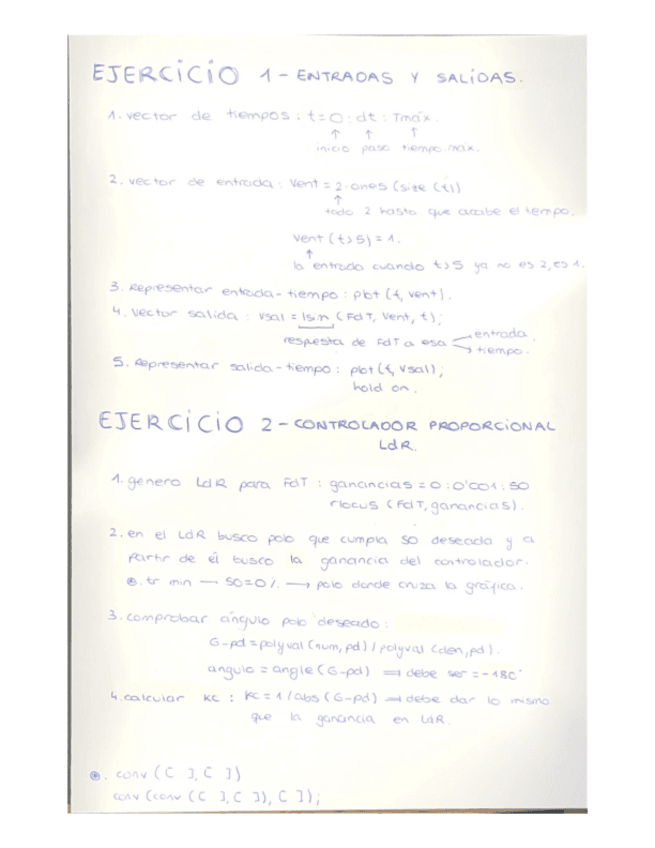 EJERCICIO 1 - ENTRADAS Y SALIDAS.
1. vector de tiempos : t = 0 : dt : Tmáx.
↑ ↑ ↑
inicio paso tiempo máx.
2. vector de entrada : Vent = 2·ones (size (t))
↑
todo 2 hasta que acabe el tempo.
Vent (t>5) = 1.
↑
la entrada cuando t>5 ya no es 2, es 1.
3. Representar entrada-tiempo : plot (t, Vent).
4. Vector salida : Vsal = lsim (FdT, Vent, t);
respuesta de FdT a esa entrada.
tiempo.
5. Representar salida-tiempo : plot (t, Vsal);
hold on.
EJERCICIO 2 - CONTROLADOR PROPORCIONAL
LdR.
1. genero LdR para FdT : ganancias = 0 : 0'001 : 50
rlocus (FdT, ganancias).
2. en el LdR busco polo que cumpla SO deseada y a
partir de él busco la ganancia del controlador.
⊛. tr min → SO=0% → polo donde cruza la gráfica.
3. comprobar ángulo polo deseado :
G-pd = polyval (num, pd) / polyval (den, pd).
angulo = angle (G-pd) ⇒ debe ser = -180°
4. calcular KC : KC = 1 / abs (G-pd) ⇒ debe dar lo mismo
que la ganancia en LdR.
⊛. conv ([ ], [ ])
conv (conv ([ ], [ ]), [ ]);